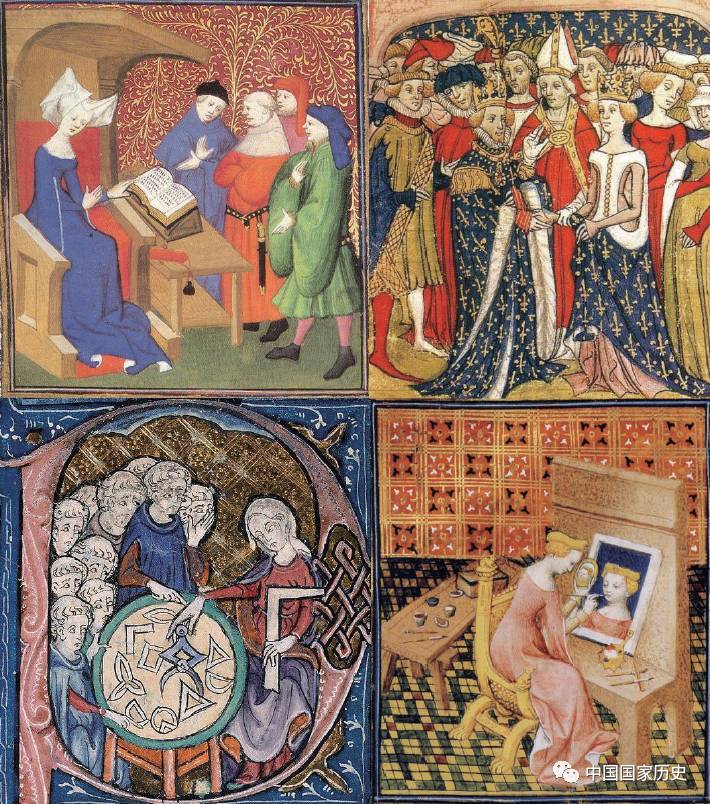 中国国家历史